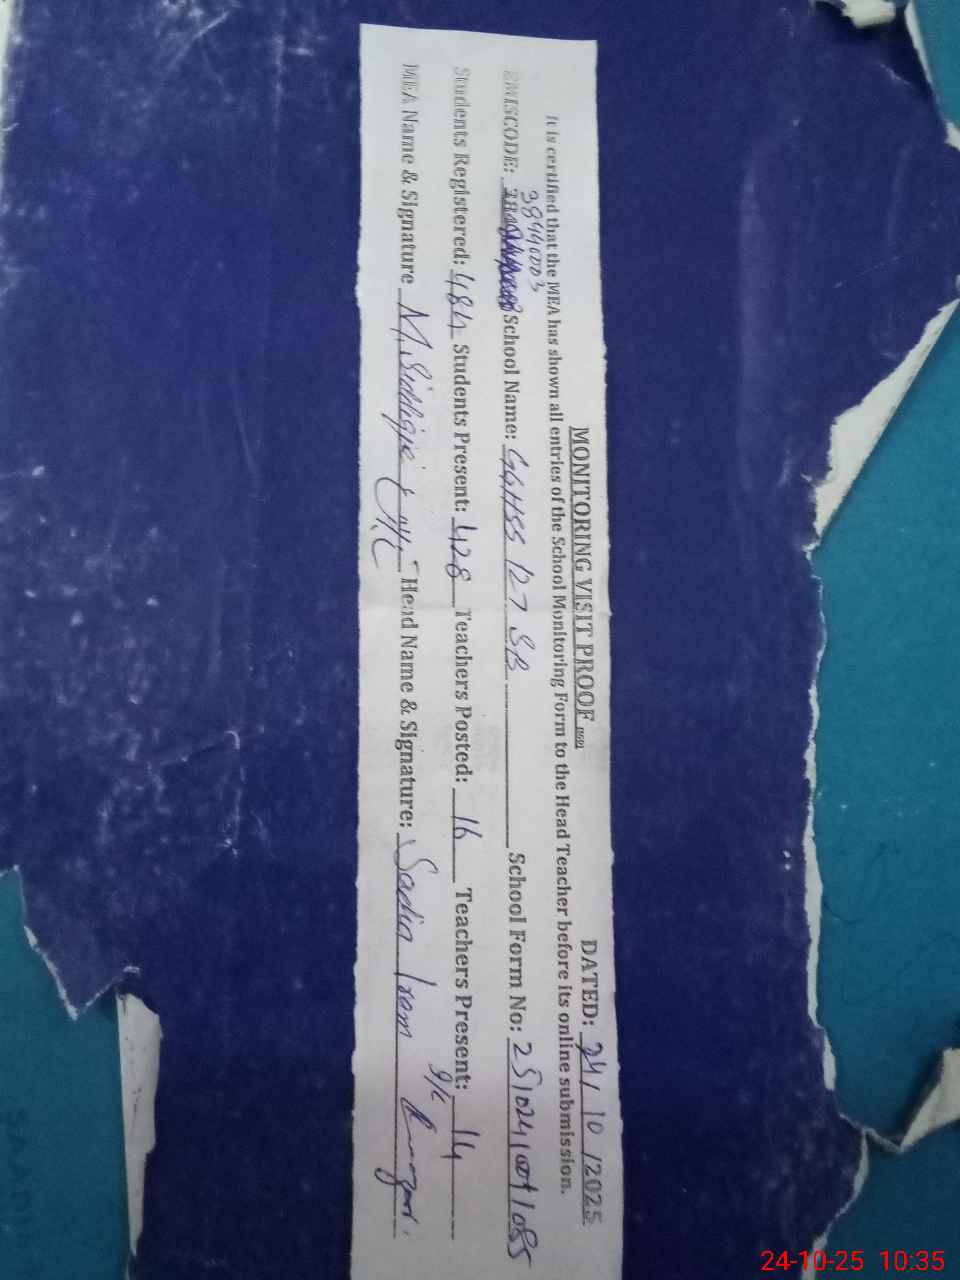 MONITORING VISIT PROOF DATED: 24/10/2025
It is certified that the MEA has shown all entries of the School Monitoring Form to the Head Teacher before its online submission.
38440003
EMISCODE: School Name: GGHSS 127 SB School Form No:
Students Registered: 484 Students Present: 428 Teachers Posted: 16 Teachers Present: 14
MEA Name & Signature M. Siddique Head Name & Signature: Sadia Iram
24-10-25 10:35